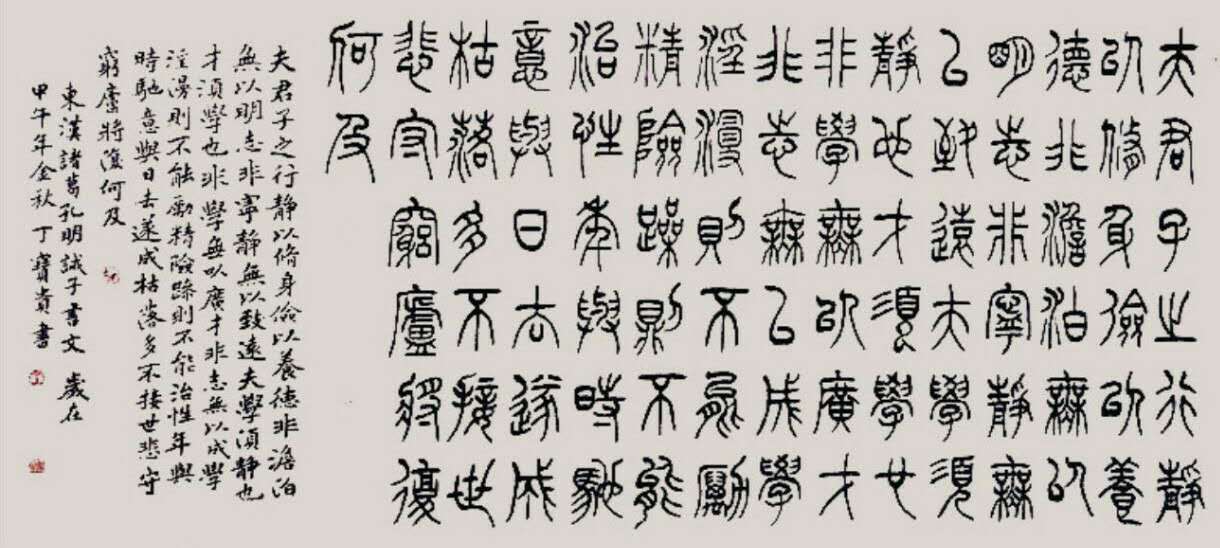 夫君子之行靜
以脩身儉以養
德非澹泊無以
明志非寧靜無
以致遠夫學須
靜也才須學也
非學無以廣才
非志無以成學
淫漫則不能勵
精險躁則不能
治性年與時馳
意與日去遂成
枯落多不接世
悲守窮廬將復
何及
夫君子之行靜以脩身儉以養德非澹泊
無以明志非寧靜無以致遠夫學須靜也
才須學也非學無以廣才非志無以成學
淫漫則不能勵精險躁則不能治性年與
時馳意與日去遂成枯落多不接世悲守
窮廬將復何及
東漢諸葛孔明誡子書文 歲在
甲午年金秋丁寶貴書